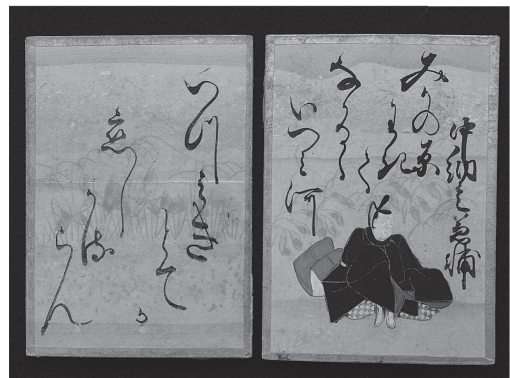 中納言兼輔
みかの原
わきて
なかるゝ
いつみ河
いつみき
とてか
恋し
かる
らん